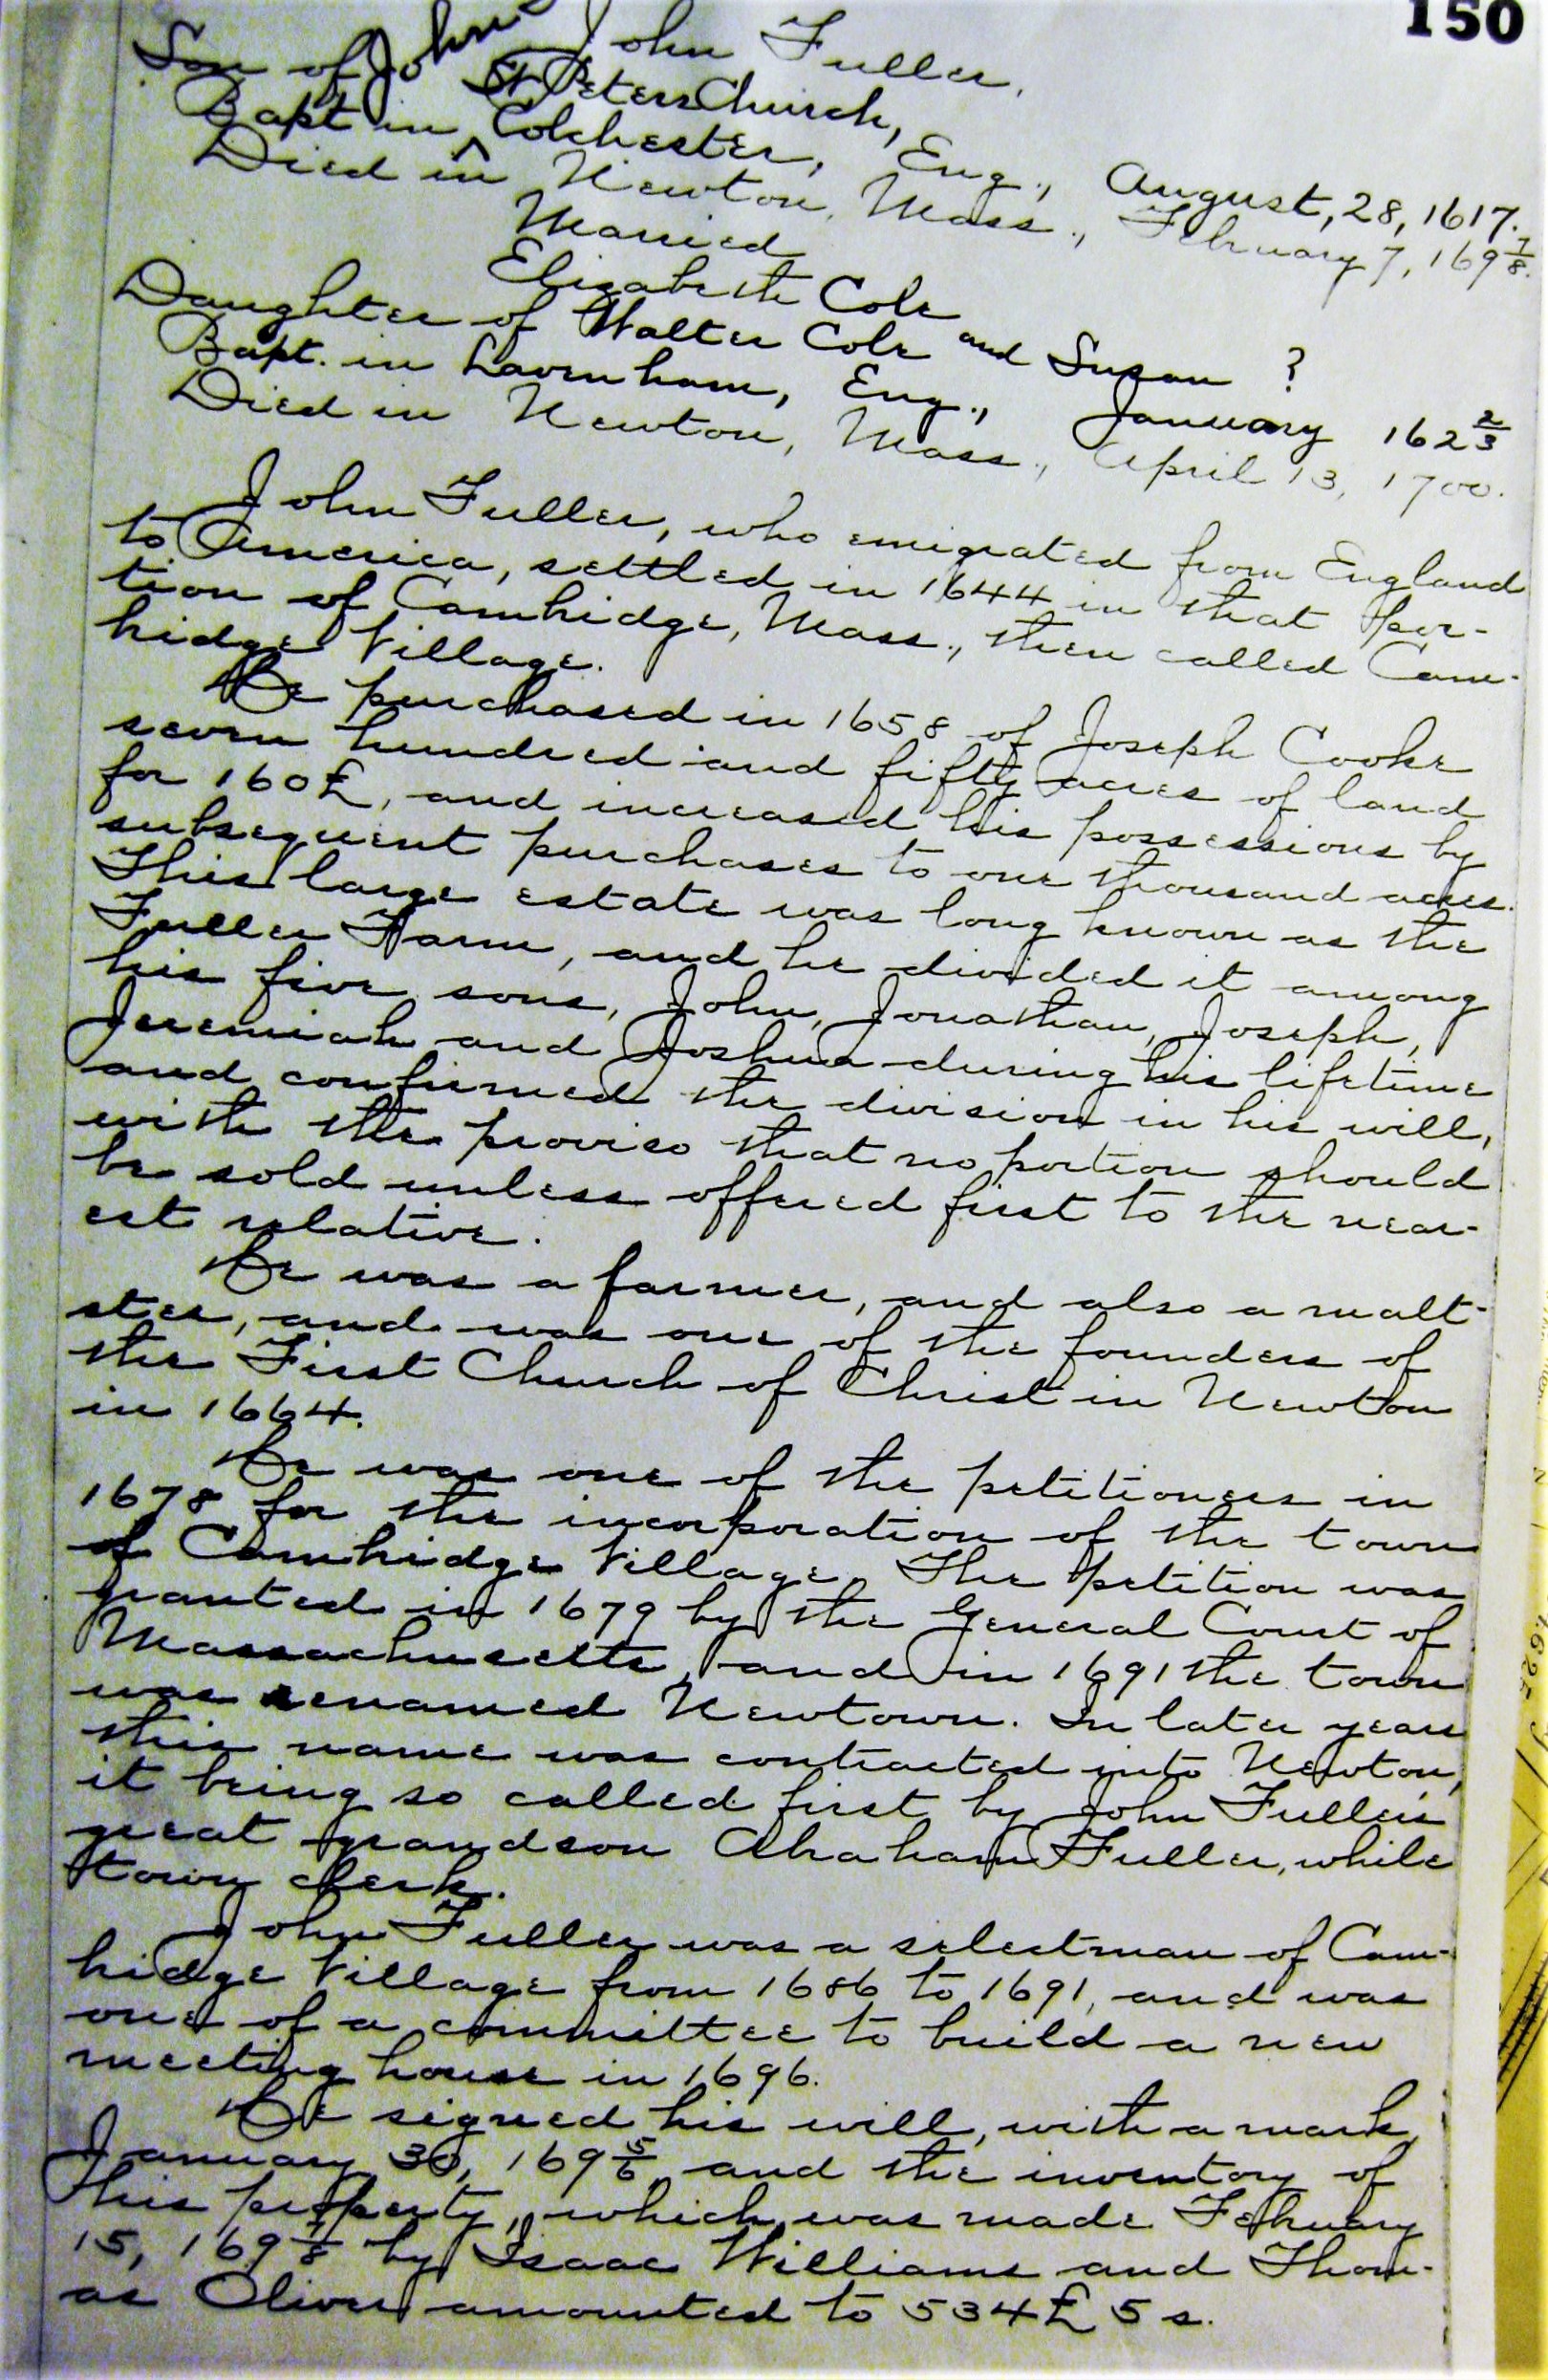 150
John Fuller,
Son of John
St Peters Church,
Bapt in ^ Colchester, Eng., August, 28, 1617.
Died in Newton, Mass., February 7, 169 7/8.
Married
Elizabeth Cole
Daughter of Walter Cole and Susan ?
Bapt. in Lavenham, Eng., January 162 2/3
Died in Newton, Mass., April 13, 1700.
John Fuller, who emigrated from England
to America, settled in 1644 in that por-
tion of Cambridge, Mass., then called Cam-
bridge Village.
He purchased in 1658 of Joseph Cooke
seven hundred and fifty acres of land
for 160£, and increased his possessions by
subsequent purchases to one thousand acres.
This large estate was long known as the
Fuller Farm, and he divided it among
his five sons, John, Jonathan, Joseph,
Jeremiah and Joshua during his lifetime
and confirmed the division in his will,
with the proviso that no portion should
be sold unless offered first to the near-
est relative.
He was a farmer, and also a malt-
ster, and was one of the founders of
the First Church of Christ in Newton
in 1664.
He was one of the petitioners in
1678 for the incorporation of the town
of Cambridge Village. The petition was
granted in 1679 by the General Court of
Massachusetts, and in 1691 the town
was renamed Newtown. In later years
this name was contracted into Newton,
it being so called first by John Fuller's
great grandson Abraham Fuller, while
town clerk.
John Fuller was a selectman of Cam-
bridge Village from 1686 to 1691, and was
one of a committee to build a new
meeting house in 1696.
He signed his will, with a mark,
January 30, 169 5/6, and the inventory of
his property, which was made February
15, 169 7/8 by Isaac Williams and Thom-
as Oliver amounted to 534£ 5s.